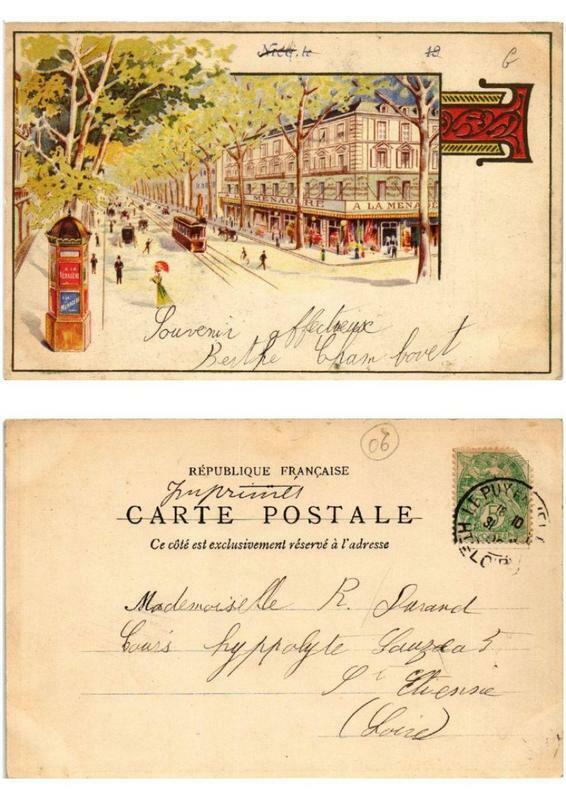 Nice, le 19
6
MÉNAGÈRE A LA MÉNAG
A LA
MÉNAGÈRE
A LA
MÉNAGÈRE
Souvenir affectueux
Berthe Chambovet
06
RÉPUBLIQUE FRANÇAISE
Imprimés
CARTE POSTALE
Ce côté est exclusivement réservé à l'adresse
LE PUY-EN-VELAY
HTE LOIRE
31 10
Mademoiselle R. Durand
Cours hyppolyte Sauzea 5
St Etienne
(Loire)